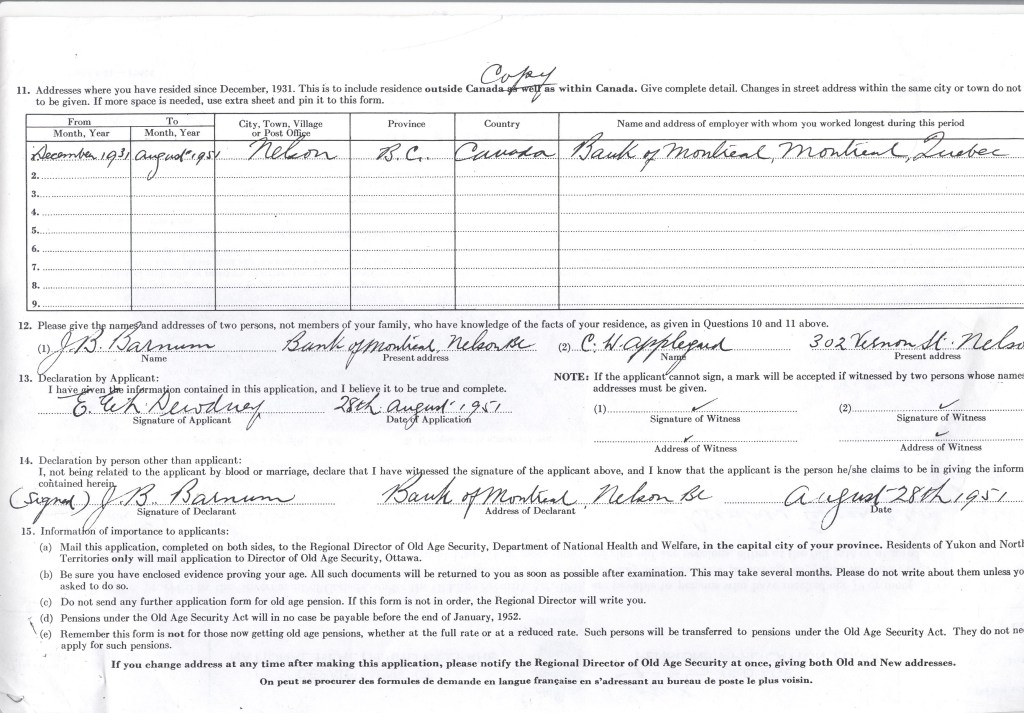 Copy
11. Addresses where you have resided since December, 1931. This is to include residence outside Canada as well as within Canada. Give complete detail. Changes in street address within the same city or town do not
to be given. If more space is needed, use extra sheet and pin it to this form.
From To City, Town, Village Province Country Name and address of employer with whom you worked longest during this period
Month, Year Month, Year or Post Office
December 1931 August 1951 Nelson B.C. Canada Bank of Montreal, Montreal, Quebec
2.
3.
4.
5.
6.
7.
8.
9.
12. Please give the names and addresses of two persons, not members of your family, who have knowledge of the facts of your residence, as given in Questions 10 and 11 above.
(1) J.B. Barnum Bank of Montreal, Nelson BC (2) C. W. Appleyard 302 Vernon St. Nelso
Name Present address Name Present address
13. Declaration by Applicant: NOTE: If the applicant cannot sign, a mark will be accepted if witnessed by two persons whose names
I have given the information contained in this application, and I believe it to be true and complete. addresses must be given.
E. Dewdney 28th August 1951 (1) ✓ (2) ✓
Signature of Applicant Date of Application Signature of Witness Signature of Witness
✓ ✓
Address of Witness Address of Witness
14. Declaration by person other than applicant:
I, not being related to the applicant by blood or marriage, declare that I have witnessed the signature of the applicant above, and I know that the applicant is the person he/she claims to be in giving the inform
contained herein.
(Signed) J.B. Barnum Bank of Montreal, Nelson BC August 28th 1951
Signature of Declarant Address of Declarant Date
15. Information of importance to applicants:
(a) Mail this application, completed on both sides, to the Regional Director of Old Age Security, Department of National Health and Welfare, in the capital city of your province. Residents of Yukon and North
Territories only will mail application to Director of Old Age Security, Ottawa.
(b) Be sure you have enclosed evidence proving your age. All such documents will be returned to you as soon as possible after examination. This may take several months. Please do not write about them unless yo
asked to do so.
(c) Do not send any further application form for old age pension. If this form is not in order, the Regional Director will write you.
(d) Pensions under the Old Age Security Act will in no case be payable before the end of January, 1952.
(e) Remember this form is not for those now getting old age pensions, whether at the full rate or at a reduced rate. Such persons will be transferred to pensions under the Old Age Security Act. They do not ne
apply for such pensions.
If you change address at any time after making this application, please notify the Regional Director of Old Age Security at once, giving both Old and New addresses.
On peut se procurer des formules de demande en langue française en s'adressant au bureau de poste le plus voisin.